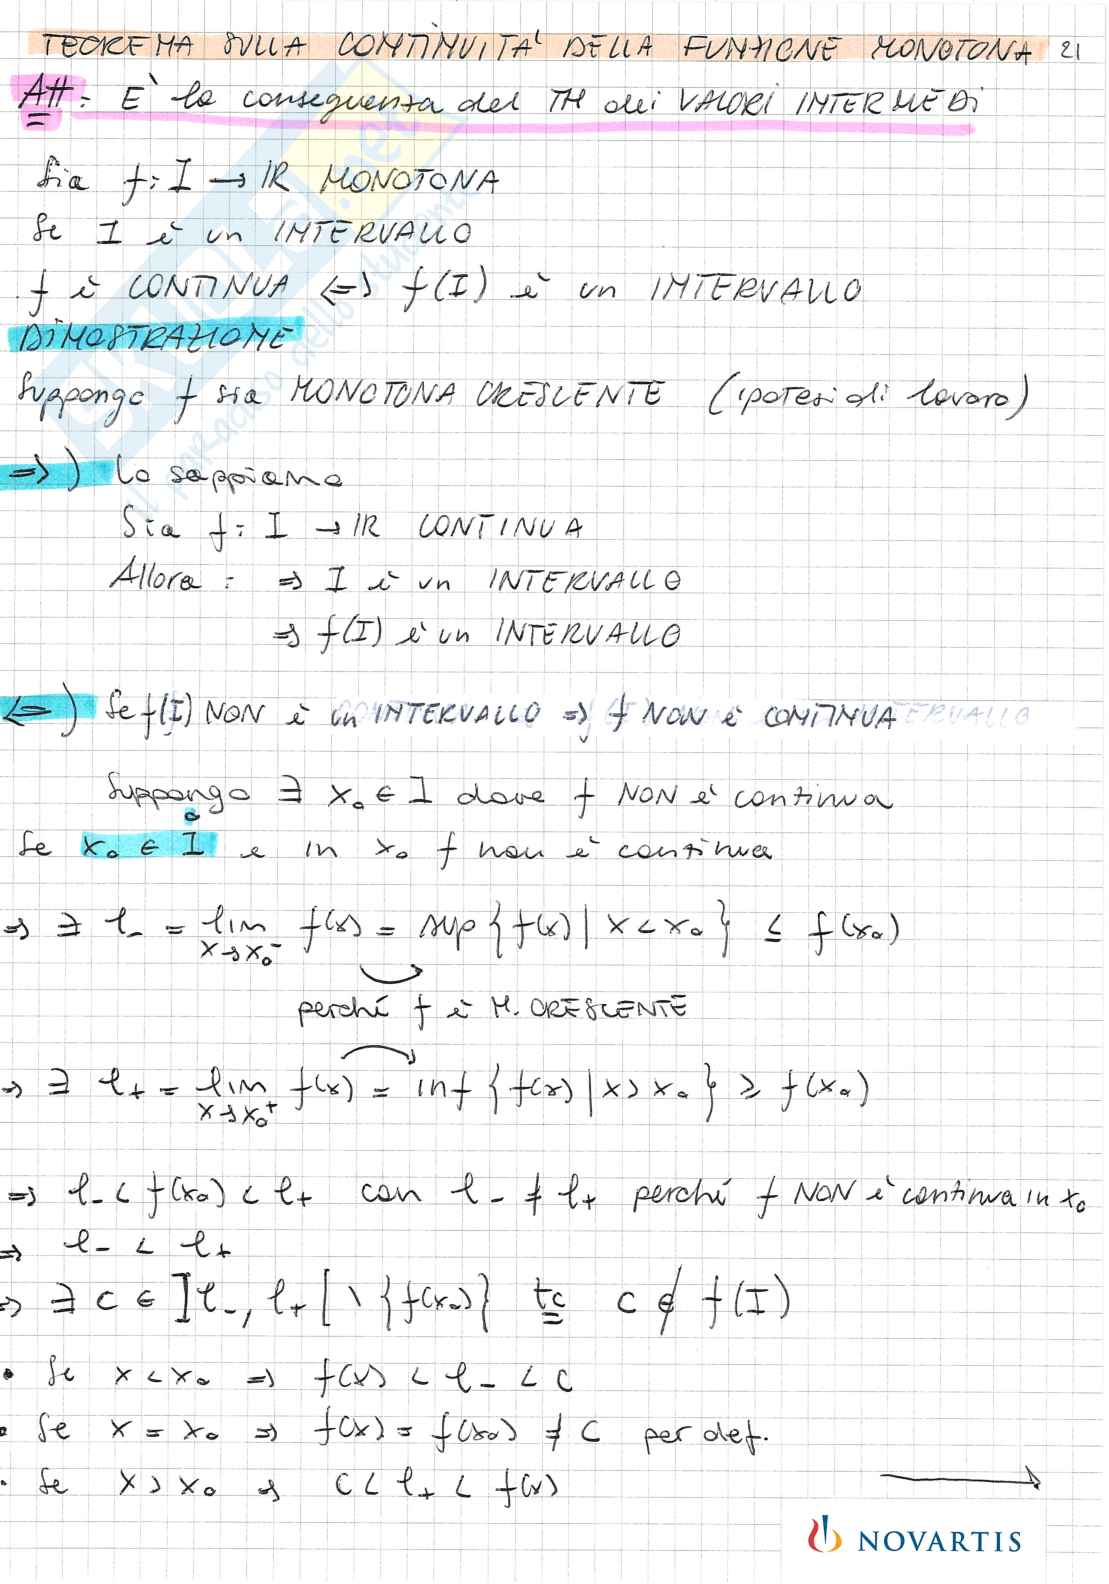 TEOREMA SULLA CONTINUITA' DELLA FUNZIONE MONOTONA 21
Att: E' la conseguenza del TH dei VALORI INTERMEDI
Sia f: I → IR MONOTONA
Se I è un INTERVALLO
f è CONTINUA <=> f(I) è un INTERVALLO
DIMOSTRAZIONE
Suppongo f sia MONOTONA CRESCENTE (ipotesi di lavoro)
=>) Lo sappiamo
Sia f: I → IR CONTINUA
Allora: => I è un INTERVALLO
=> f(I) è un INTERVALLO
<=) Se f(I) NON è un INTERVALLO => f NON è CONTINUA
Suppongo ∃ x₀ ∈ I dove f NON è continua
Se x₀ ∈ I° e in x₀ f non è continua
=> ∃ l₋ = lim x→x₀⁻ f(x) = sup {f(x) | x < x₀} ≤ f(x₀)
perché f è M. CRESCENTE
=> ∃ l₊ = lim x→x₀⁺ f(x) = inf {f(x) | x > x₀} ≥ f(x₀)
=> l₋ < f(x₀) < l₊ con l₋ ≠ l₊ perché f NON è continua in x₀
=> l₋ < l₊
=> ∃ c ∈ ]l₋, l₊[ \ {f(x₀)} tc c ∉ f(I)
• Se x < x₀ => f(x) < l₋ < c
• Se x = x₀ => f(x) = f(x₀) ≠ c per def.
• Se x > x₀ => c < l₊ < f(x)
→
NOVARTIS
SKUOLA.net